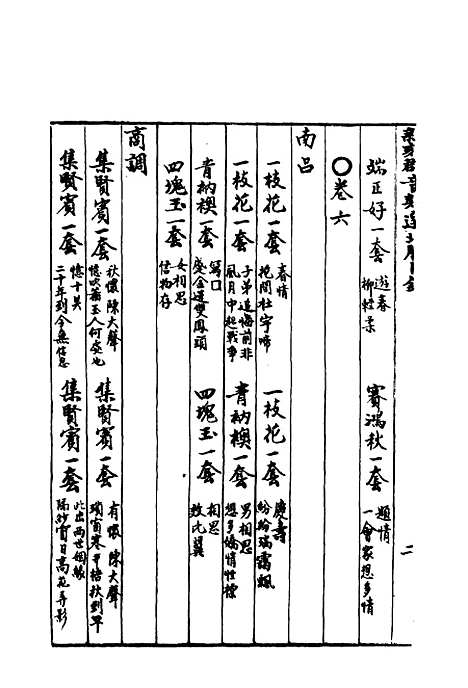 端正好一套 遊春 柳輕柔
賽鴻秋一套 題情 一會家想多情
二
〇卷六
南呂
一枝花一套 春情 艳閙杜宇啼
一枝花一套 慶壽 紛紛瑞靄飄
一枝花一套 子弟追悔前非 風月中起戰爭
青衲襖一套 男相思 想多嬌情性標
青衲襖一套 寫口 蹙金蓮雙鳳頭
四塊玉一套 相思 效比翼
四塊玉一套 女相思 信物存
商調
集賢賓一套 秋懷 陳大聲 憶吹簫玉人何處也
集賢賓一套 有懷 陳大聲 瑣窗寒井梧秋到早
集賢賓一套 憶十美 二十年到今無信息
集賢賓一套 此出兩世姻緣 隔紗窗日高花弄影